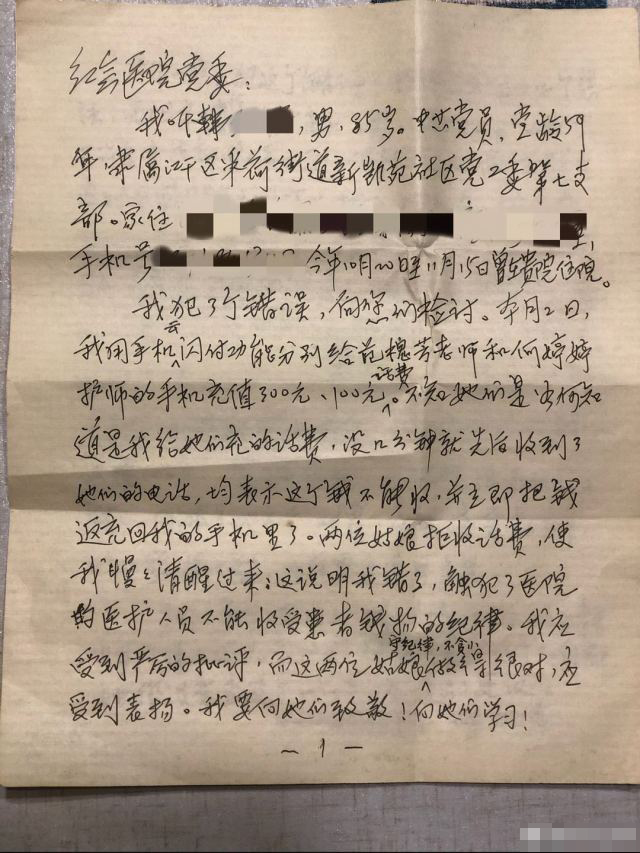 红会医院党委：
我叫韩，男，85岁。中共党员，党龄59
年，隶属江干区采荷街道新凯苑社区党工委第七支
部。家住
手机号 今年10月20日至11月15日曾在贵院住院。
我犯了个错误，向您们检讨。本月2日，
我用手机云闪付功能分别给范槐芳老师和何婷婷
护师的手机充值300元、100元话费。不知她们是如何知
道是我给她们充的话费，没几分钟就先后收到了
她们的电话，均表示这个钱不能收，并立即把钱
返充回我的手机里了。两位姑娘拒收话费，使
我慢慢清醒过来：这说明我错了，触犯了医院
的医护人员不能收受患者钱物的纪律。我应
受到严厉的批评，而这两位姑娘守纪律，不贪小，做得很对，应
受到表扬。我要向她们致敬！向她们学习！
— 1 —